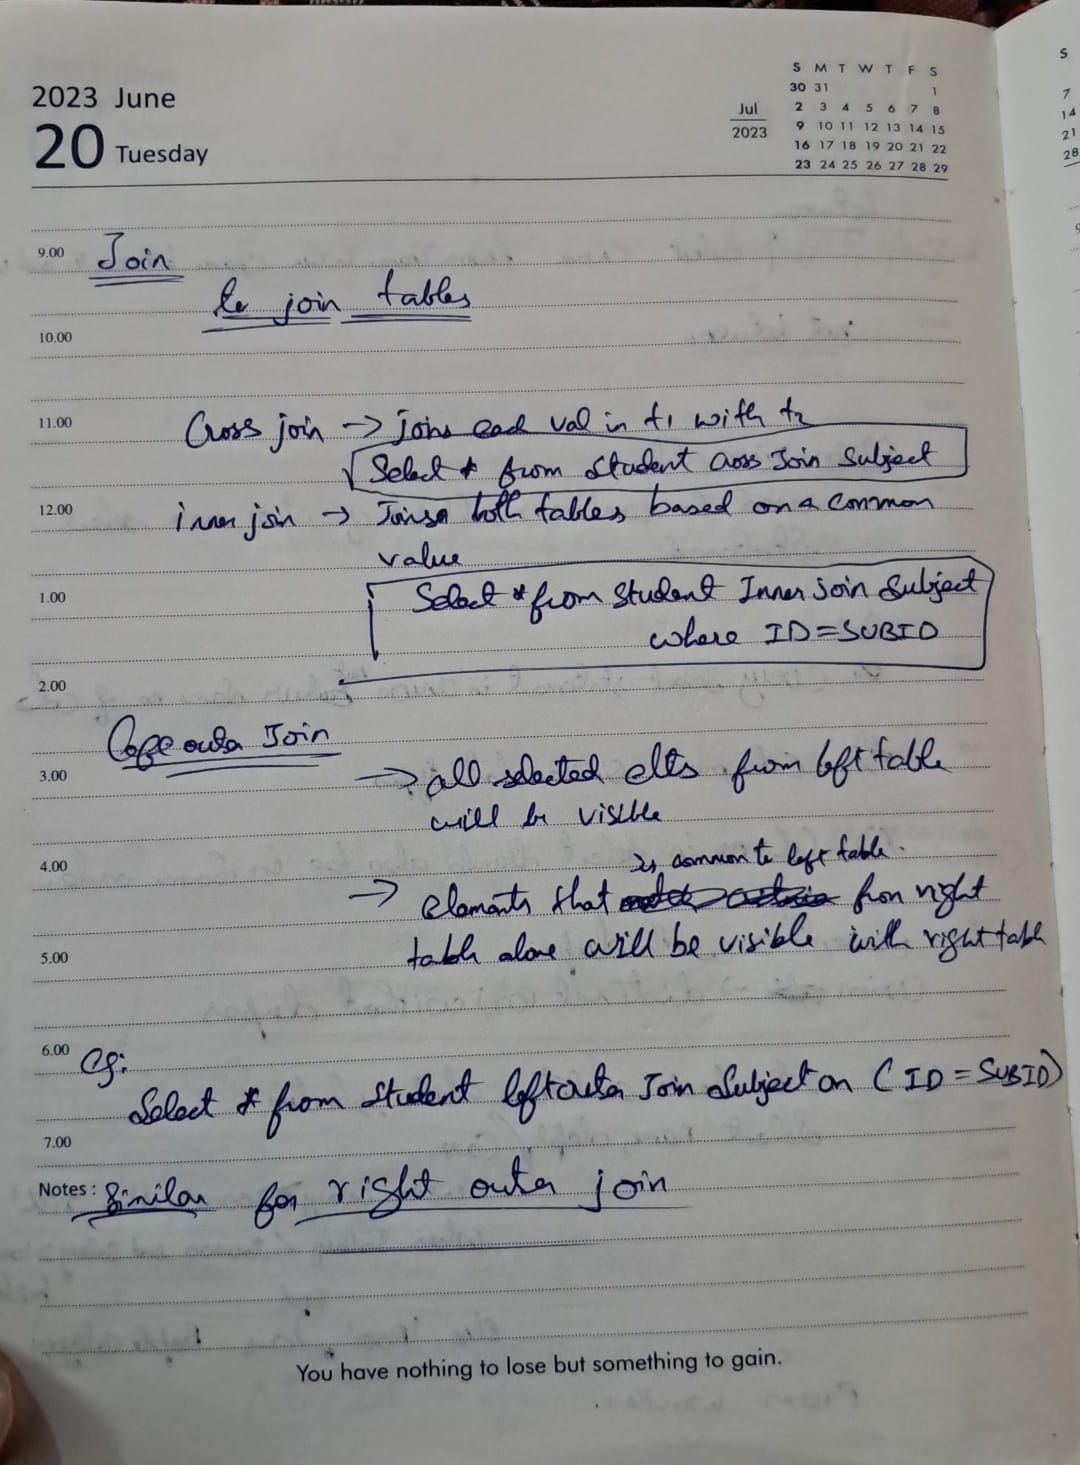 2023 June
20 Tuesday
Jul
2023
S M T W T F S
30 31 1
2 3 4 5 6 7 8
9 10 11 12 13 14 15
16 17 18 19 20 21 22
23 24 25 26 27 28 29
S
7
14
21
28
9.00 Join
to join tables
10.00
11.00 Cross join → joins each val in t1 with t2
Select * from Student Cross Join Subject
12.00 inner join → Joins both tables based on a common
value
1.00 Select * from Student Inner join Subject
where ID=SUBID
2.00
outer Join
3.00 → all selected elts from left table
will be visible
4.00 is common to left table.
→ elements that from right
5.00 table alone will be visible with right table
6.00 eg:
Select * from Student left outer Join Subject on (ID = SUBID)
7.00
Notes: Similar for right outer join
You have nothing to lose but something to gain.